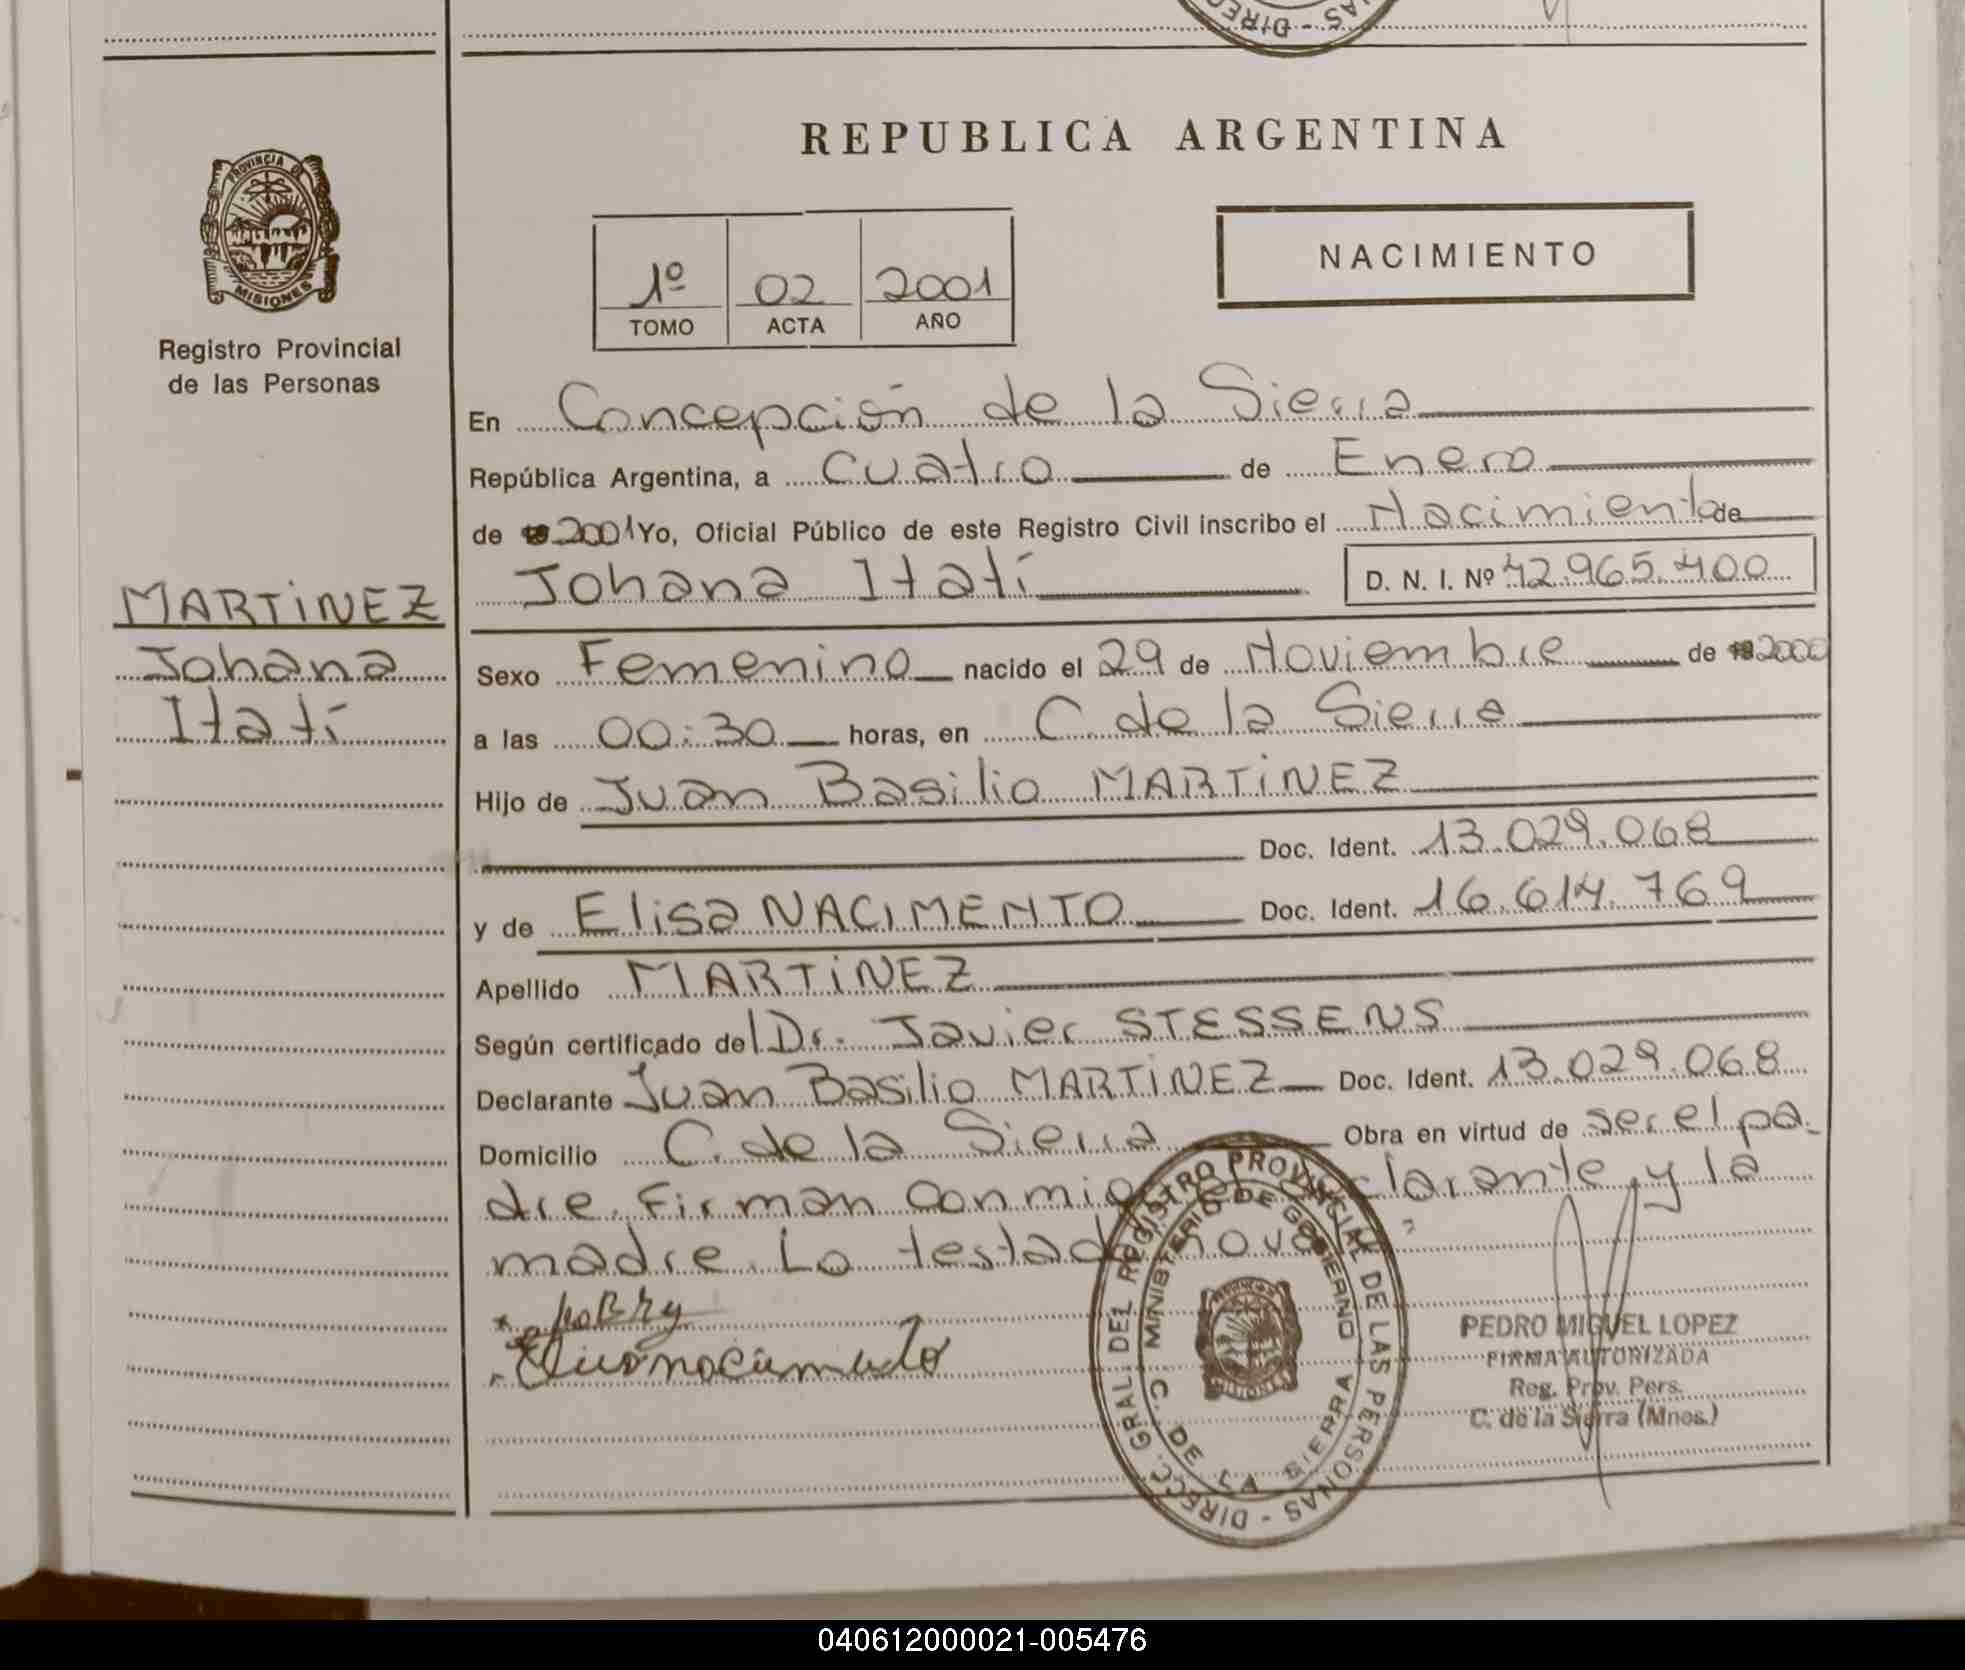 DIRECC. - NAS
REPUBLICA ARGENTINA
PROVINCIA DE MISIONES
Registro Provincial
de las Personas
1º 02 2001
TOMO ACTA AÑO
NACIMIENTO
En Concepción de la Sierra
República Argentina, a Cuatro de Enero
de 2001 Yo, Oficial Público de este Registro Civil inscribo el Nacimiento de
Johana Itatí D. N. I. Nº 42.965.400
MARTINEZ
Johana
Itatí
Sexo Femenino nacido el 29 de Noviembre de 2000
a las 00:30 horas, en C. de la Sierra
Hijo de Juan Basilio MARTINEZ
Doc. Ident. 13.029.068
y de Elisa NACIMENTO Doc. Ident. 16.614.769
Apellido MARTINEZ
Según certificado del Dr. Javier STESSENS
Declarante Juan Basilio MARTINEZ Doc. Ident. 13.029.068
Domicilio C. de la Sierra Obra en virtud de ser el pa-
dre. Firman conmigo declarante y la
madre. Lo testado no va
DIRECC. GRAL. DEL REGISTRO PROVINCIAL DE LAS PERSONAS -
MINISTERIO DE GOBIERNO
C. DE LA SIERRA
PEDRO MIGUEL LOPEZ
FIRMA AUTORIZADA
Reg. Prov. Pers.
C. de la Sierra (Mnes.)
040612000021-005476